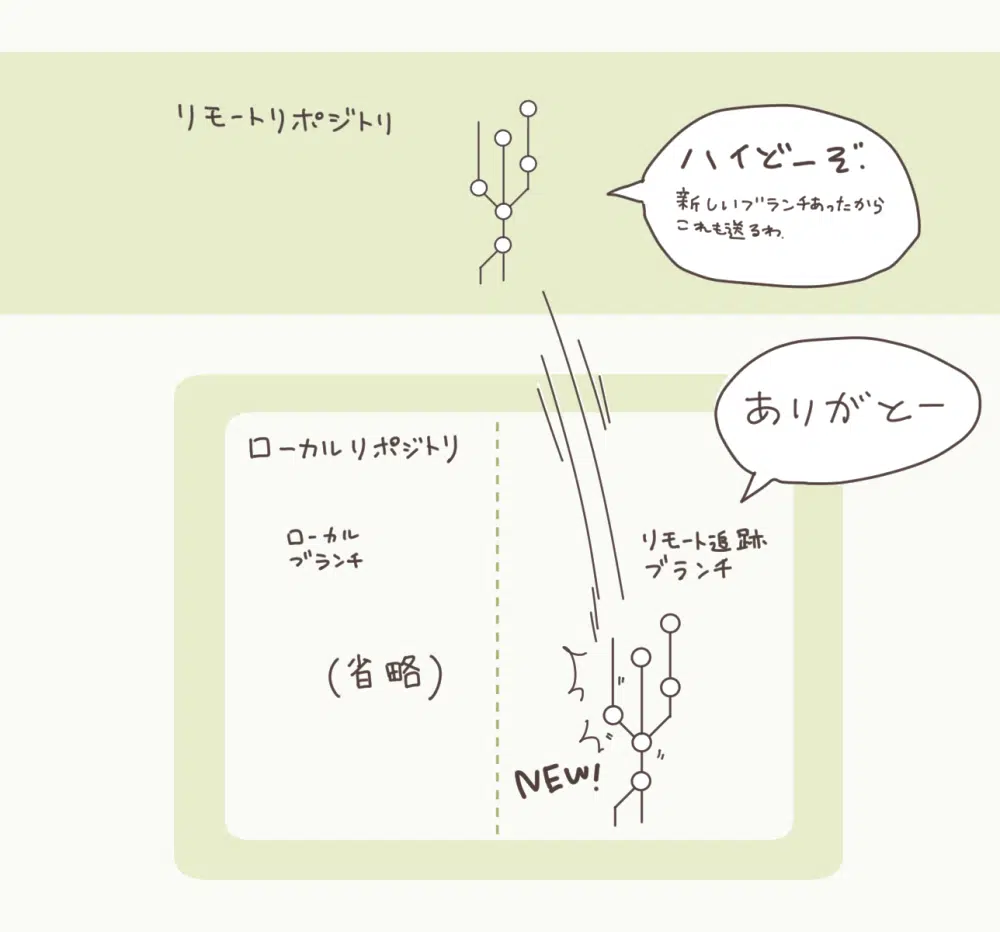 リモートリポジトリ
ハイどーぞ.
新しいブランチあったから
これも送るわ.
ありがとー
ローカルリポジトリ
ローカル
ブランチ
リモート追跡
ブランチ
(省略)
NEW!